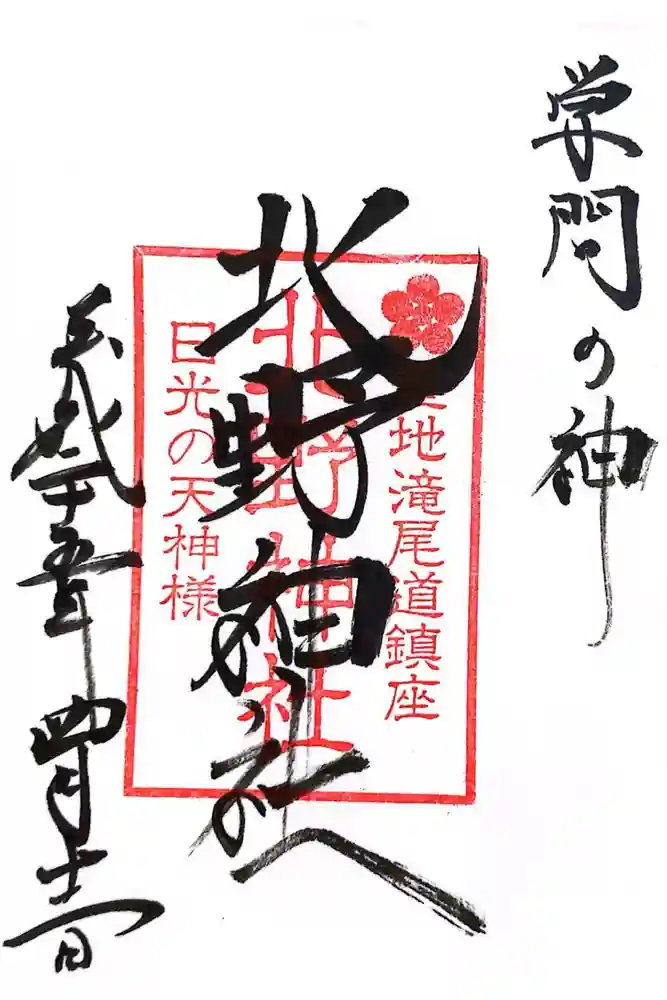 学問の神
地滝尾道鎮座
北野神社
北野神社
日光の天神様
平成二十五年 四月